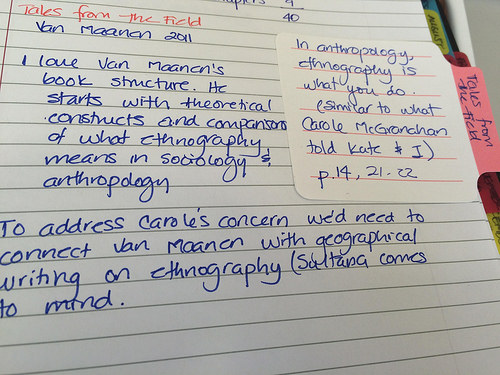 Tales from the Field
Van Maanen 2011
40
I love Van Maanen's
book structure. He
starts with theoretical
constructs and comparisons
of what ethnography
means in sociology &
anthropology
In anthropology,
ethnography is
what you do.
(similar to what
Carole McGranahan
told Kate & I)
p.14, 21-22
Tales from
the Field
To address Carole's concern we'd need to
connect Van Maanen with geographical
writing on ethnography (Sultana comes
to mind.